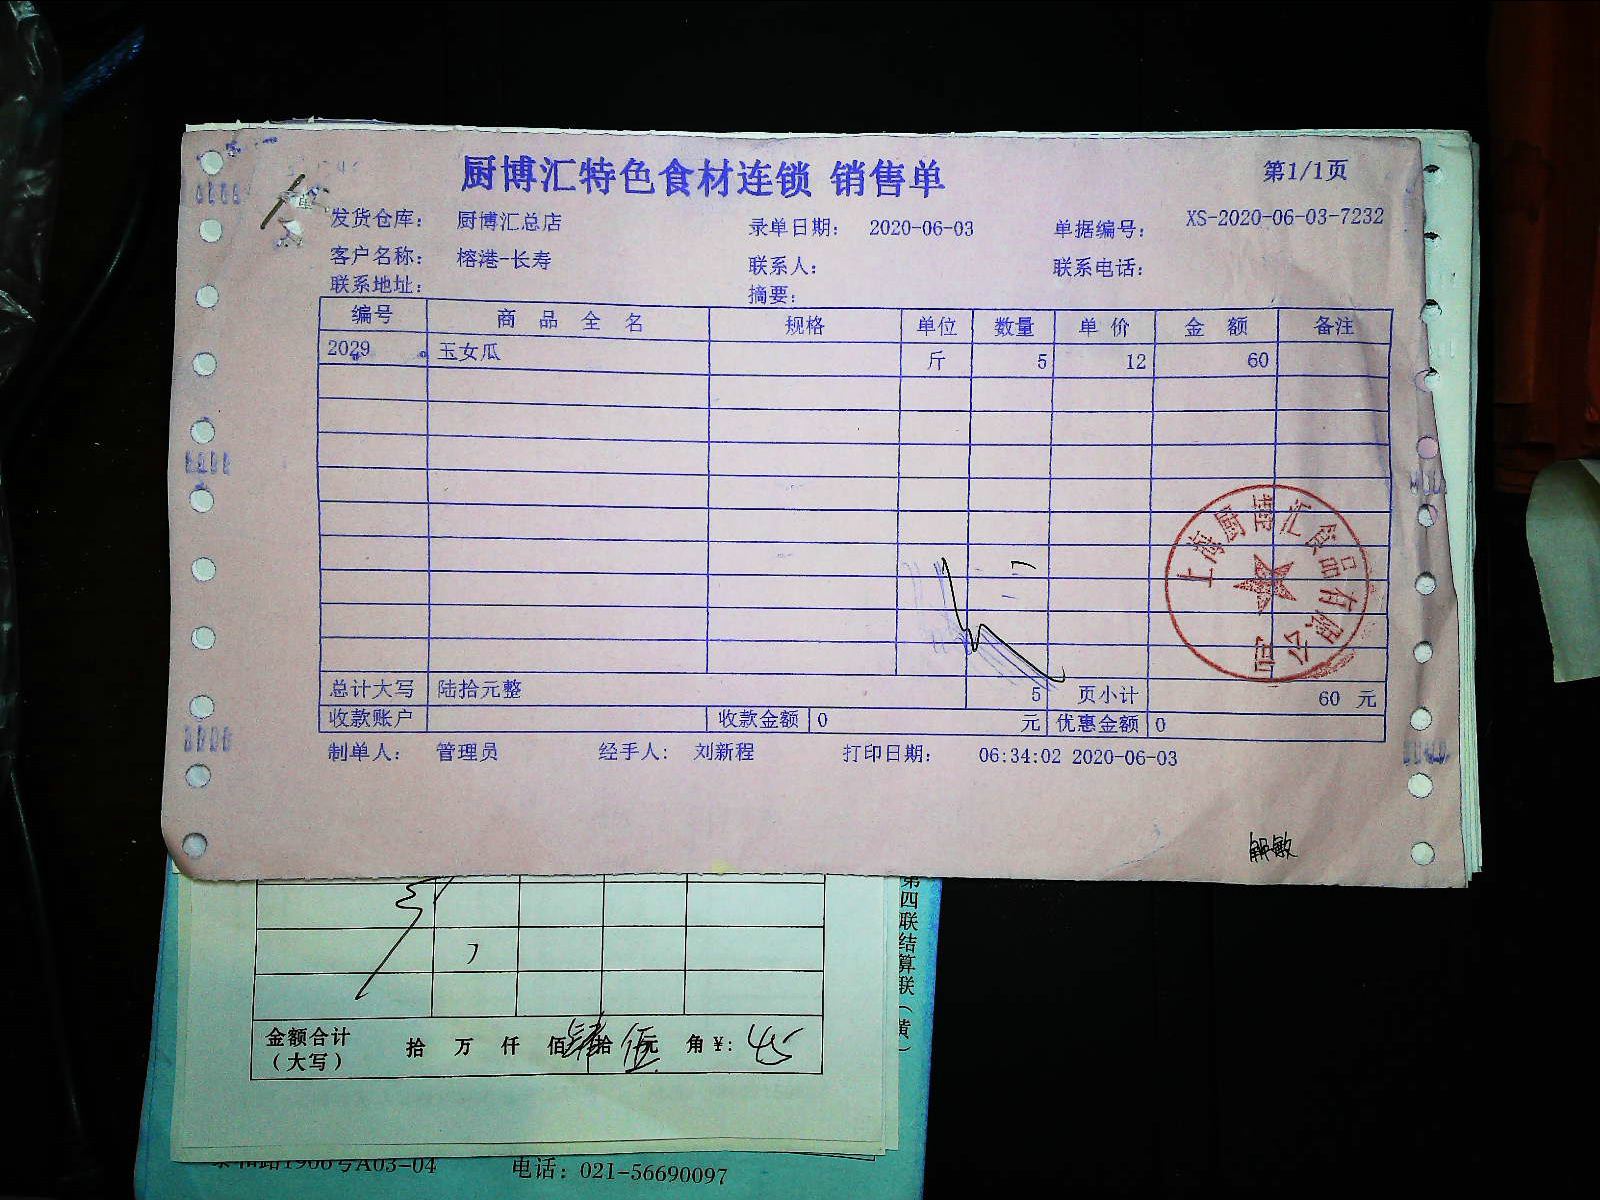 厨博汇特色食材连锁 销售单
第1/1页
发货仓库： 厨博汇总店 录单日期： 2020-06-03 单据编号： XS-2020-06-03-7232
客户名称： 榕港-长寿 联系人： 联系电话：
联系地址： 摘要：
编号 商品全名 规格 单位 数量 单价 金额 备注
2029 玉女瓜 斤 5 12 60
上海厨博汇食品有限公司
总计大写 陆拾元整 5 页小计 60 元
收款账户 收款金额 0 元 优惠金额 0
制单人： 管理员 经手人： 刘新程 打印日期： 06:34:02 2020-06-03
第四联结算联（黄）
金额合计（大写） 拾 万 仟 佰肆拾伍元 角 ¥: 45
号A03-04 电话：021-56690097